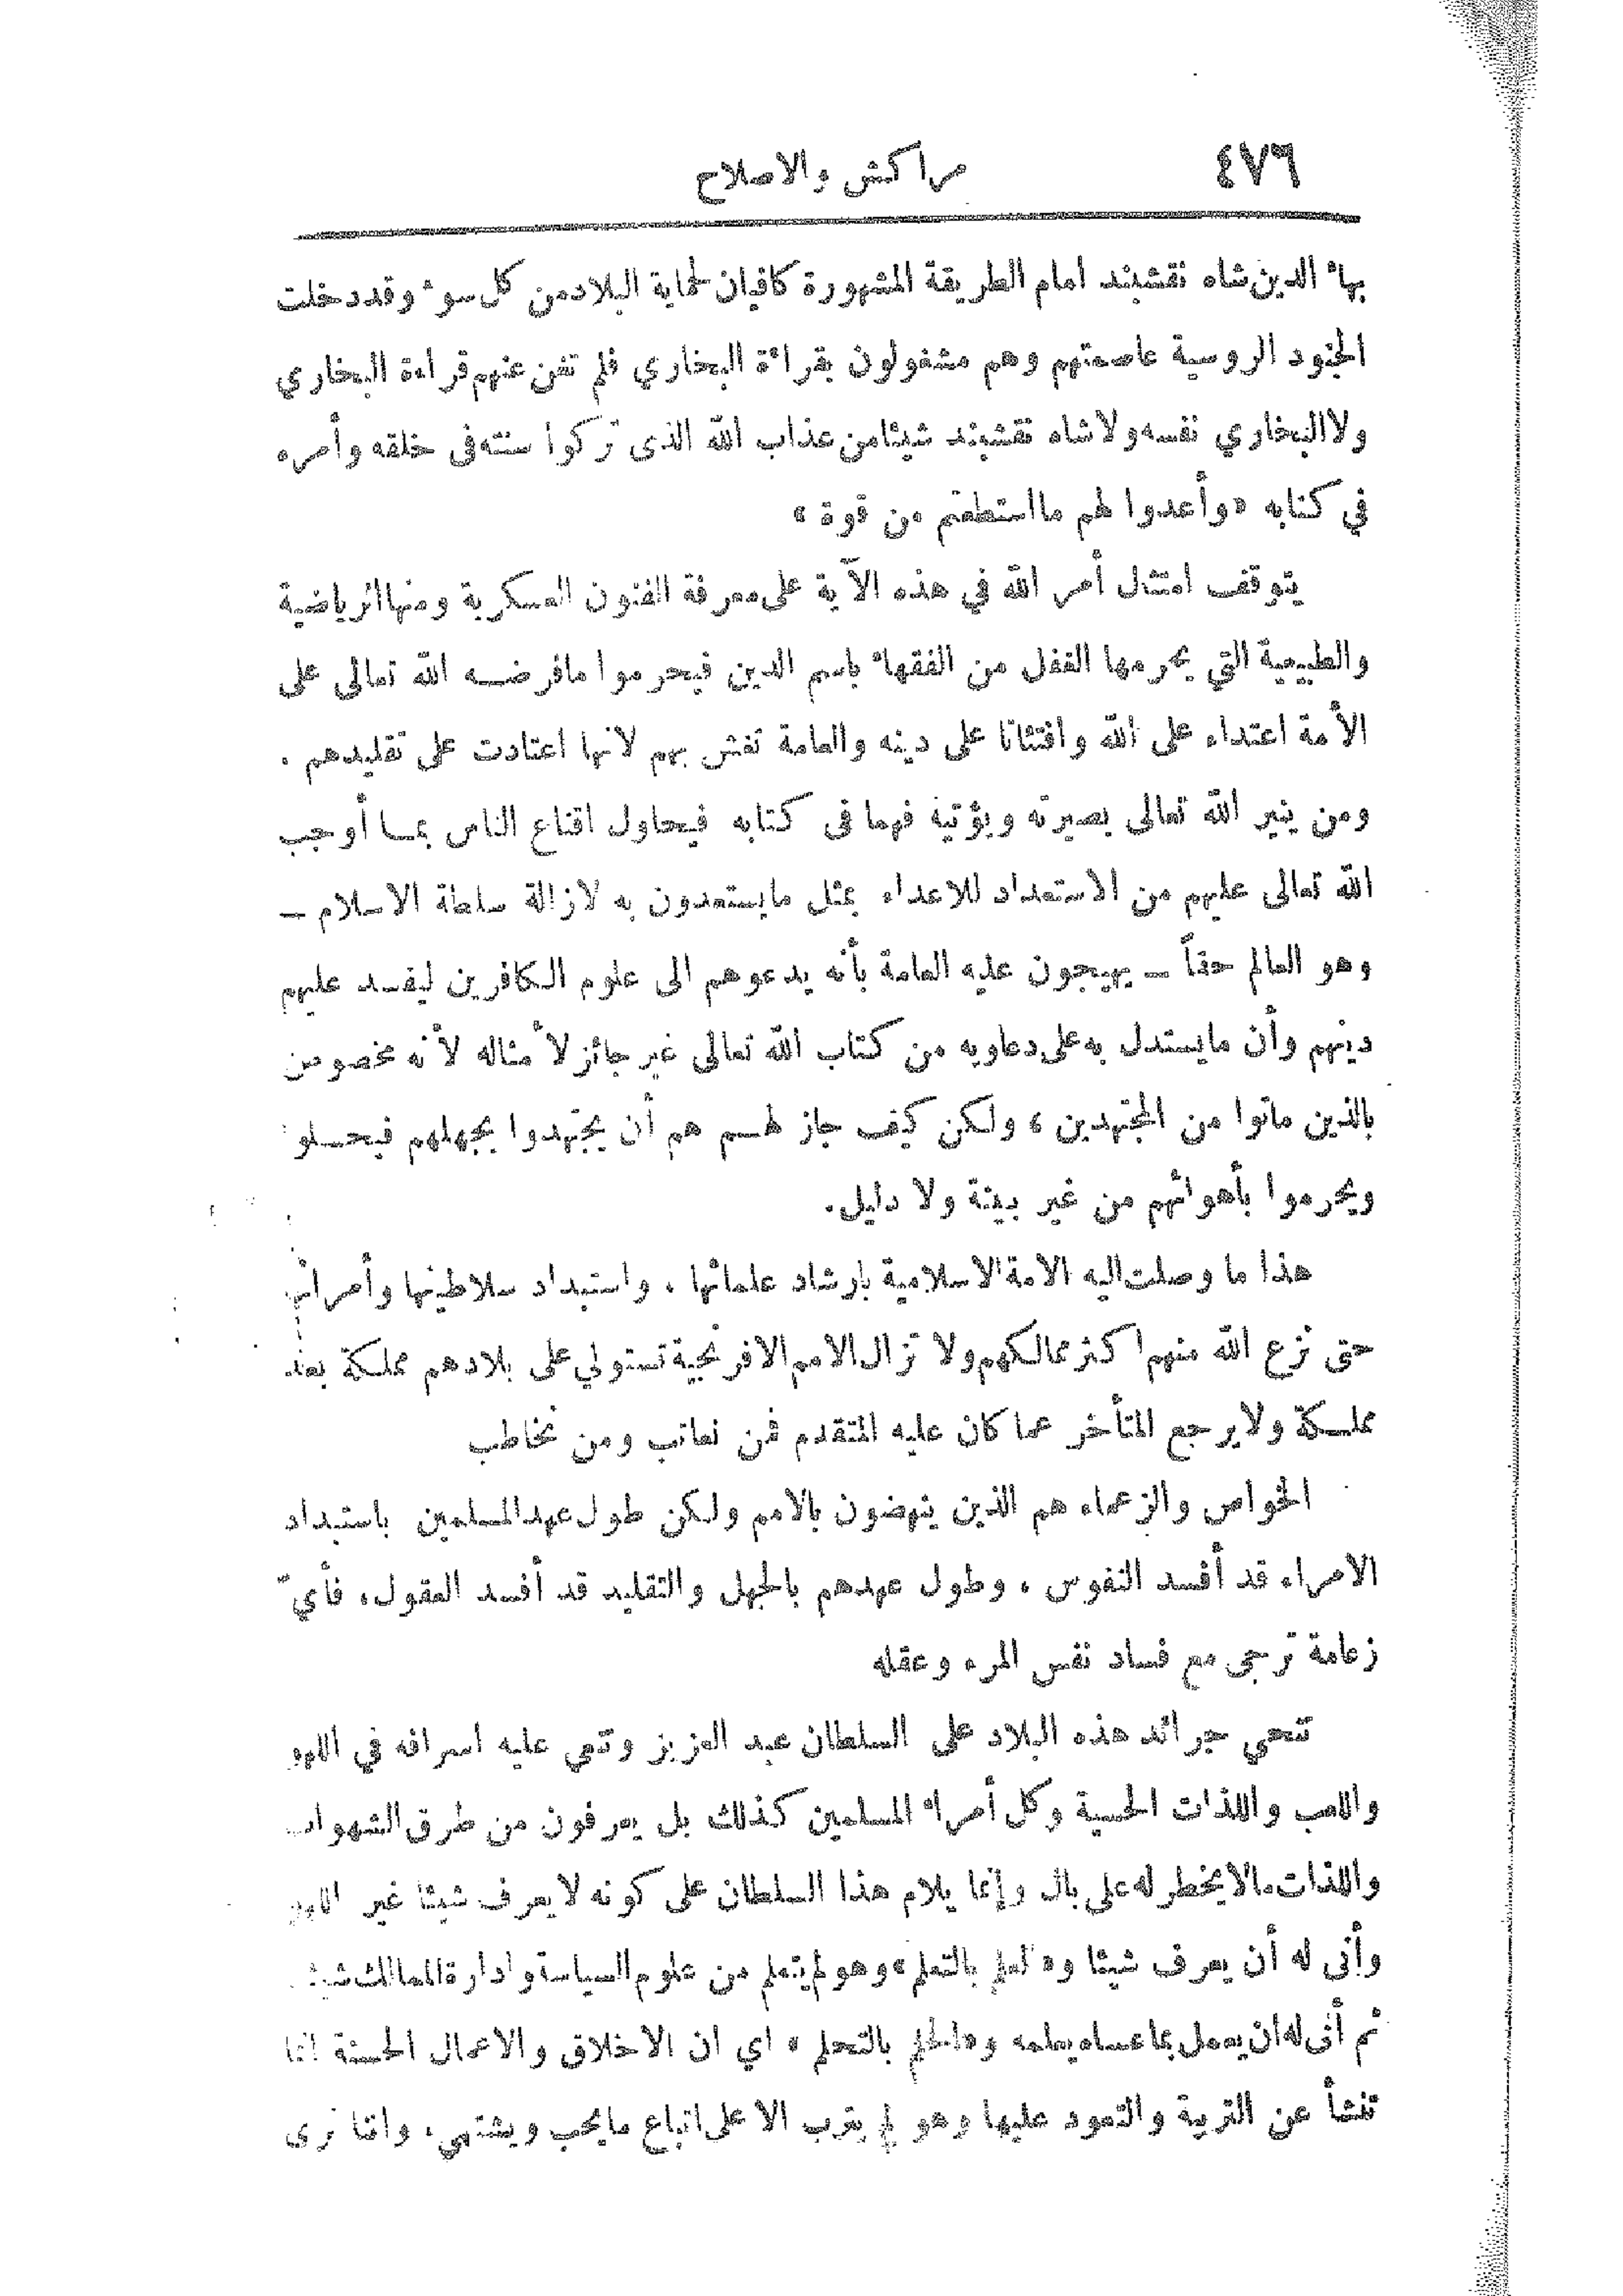 ٤٧٦
مراكش والاصلاح
بهاء الدين شاه نقشبند امام الطريقة المشهورة كافيان لحماية البلاد من كل سوء وقد دخلت
الجنود الروسية عاصمتهم وهم مشغولون بقراءة البخاري فلم تغن عنهم قراءة البخاري
ولا البخاري نفسه ولا شاه نقشبند شيئا من عذاب الله الذى تركوا سنته فى خلقه وأمره
في كتابه «وأعدوا لهم ما استطعتم من قوة»
يتوقف امتثال أمر الله في هذه الآية على معرفة الفنون العسكرية ومنها الرياضية
والطبيعية التي يحرمها الغفل من الفقهاء باسم الدين فيحرموا ما فرضه الله تعالى على
الأمة اعتداء على الله وافتئاتا على دينه والعامة تغش بهم لانها اعتادت على تقليدهم .
ومن ينير الله تعالى بصيرته ويؤتيه فهما فى كتابه فيحاول اقناع الناس بمـا أوجب
الله تعالى عليهم من الاستعداد للاعداء بمثل ما يستعدون به لازالة سلطة الاسلام ـ
وهو العالم حقاً ـ يهيجون عليه العامة بأنه يدعوهم الى علوم الكافرين ليفسد عليهم
دينهم وأن ما يستدل به على دعاويه من كتاب الله تعالى غير جائز لأمثاله لأنه مخصوص
بالذين ماتوا من المجتهدين ، ولكن كيف جاز لهـم هم أن يجتهدوا بجهلهم فيحـلو
ويحرموا بأهوائهم من غير بينة ولا دليل.
هذا ما وصلت اليه الامة الاسلامية بارشاد علمائها ، واستبداد سلاطينها وأمرائها
حتى نزع الله منهم اكثر ممالكهم ولا تزال الامم الافرنجية تستولي على بلادهم مملكة بعد
مملـكة ولا يرجع المتأخر عما كان عليه المتقدم فمن نعاتب ومن نخاطب
الخواص والزعماء هم الذين ينهضون بالامم ولكن طول عهد المسلمين باستبداد
الامراء قد أفسد النفوس ، وطول عهدهم بالجهل والتقليد قد أفسد العقول، فأيّ
زعامة ترجى مع فساد نفس المرء وعقله
تنحي جرائد هذه البلاد على السلطان عبد العزيز وتنعي عليه اسرافه في اللهو
واللعب واللذات الحسية وكل أمراء المسلمين كذلك بل يعرفون من طرق الشهوات
واللذات ما لا يخطر له على بال وإنما يلام هذا السلطان على كونه لا يعرف شيئا غير اللهو
وأنى له أن يعرف شيئا و«العلم بالتعلم» وهو لم يتعلم من علوم السياسة وادارة الممالك شيئا
ثم أنى له ان يعمل بما عساه يعلمه و«الحلم بالتحلم» اي ان الاخلاق والاعمال الحسنة انما
تنشأ عن التربية والتعود عليها وهو لم يترب الا على اتباع ما يحب ويشتهي، واننا نرى